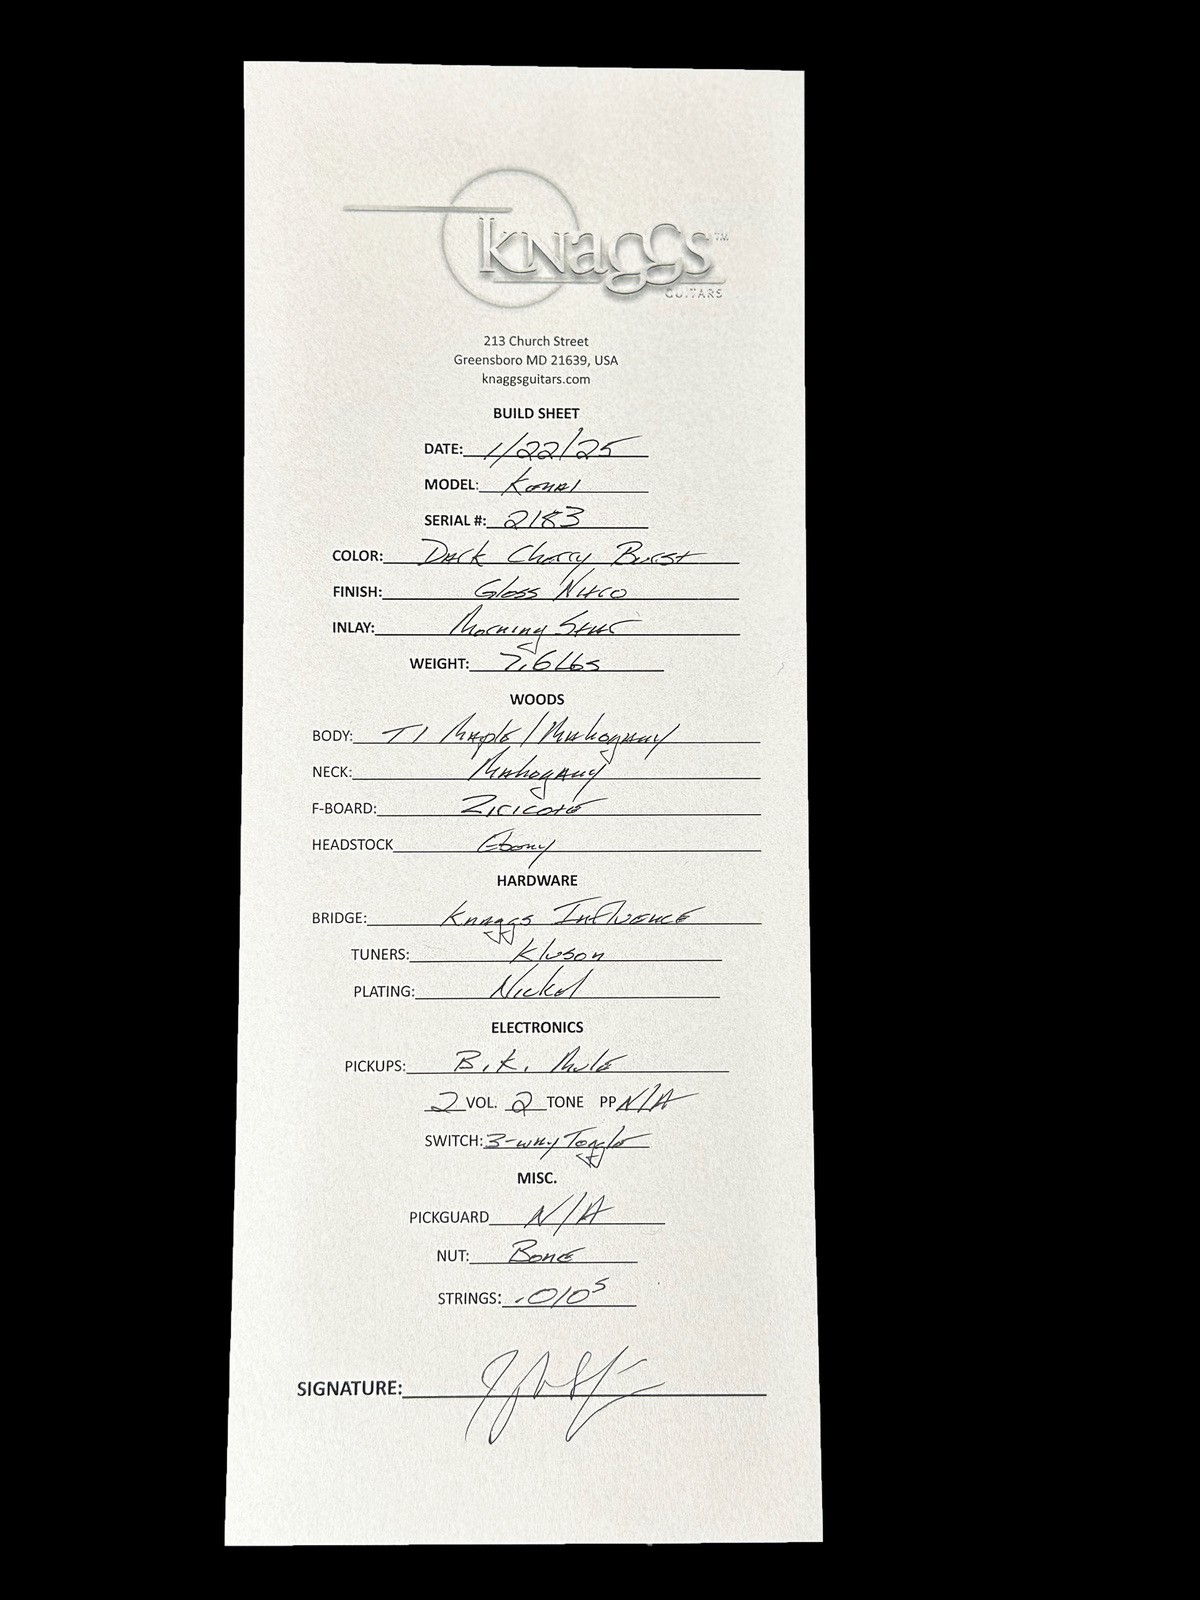 KNaGGs™
GUITARS
213 Church Street
Greensboro MD 21639, USA
knaggsguitars.com
BUILD SHEET
DATE: 1/22/25
MODEL: Kenai
SERIAL #: 2183
COLOR: Dark Cherry Burst
FINISH: Gloss Nitro
INLAY: Morning Star
WEIGHT: 7.6 Lbs
WOODS
BODY: T1 Maple / Mahogany
NECK: Mahogany
F-BOARD: Ziricote
HEADSTOCK Ebony
HARDWARE
BRIDGE: Knaggs Influence
TUNERS: Kluson
PLATING: Nickel
ELECTRONICS
PICKUPS: B.K. Mule
2 VOL. 2 TONE PP N/A
SWITCH: 3-way Toggle
MISC.
PICKGUARD N/A
NUT: Bone
STRINGS: .010s
SIGNATURE: